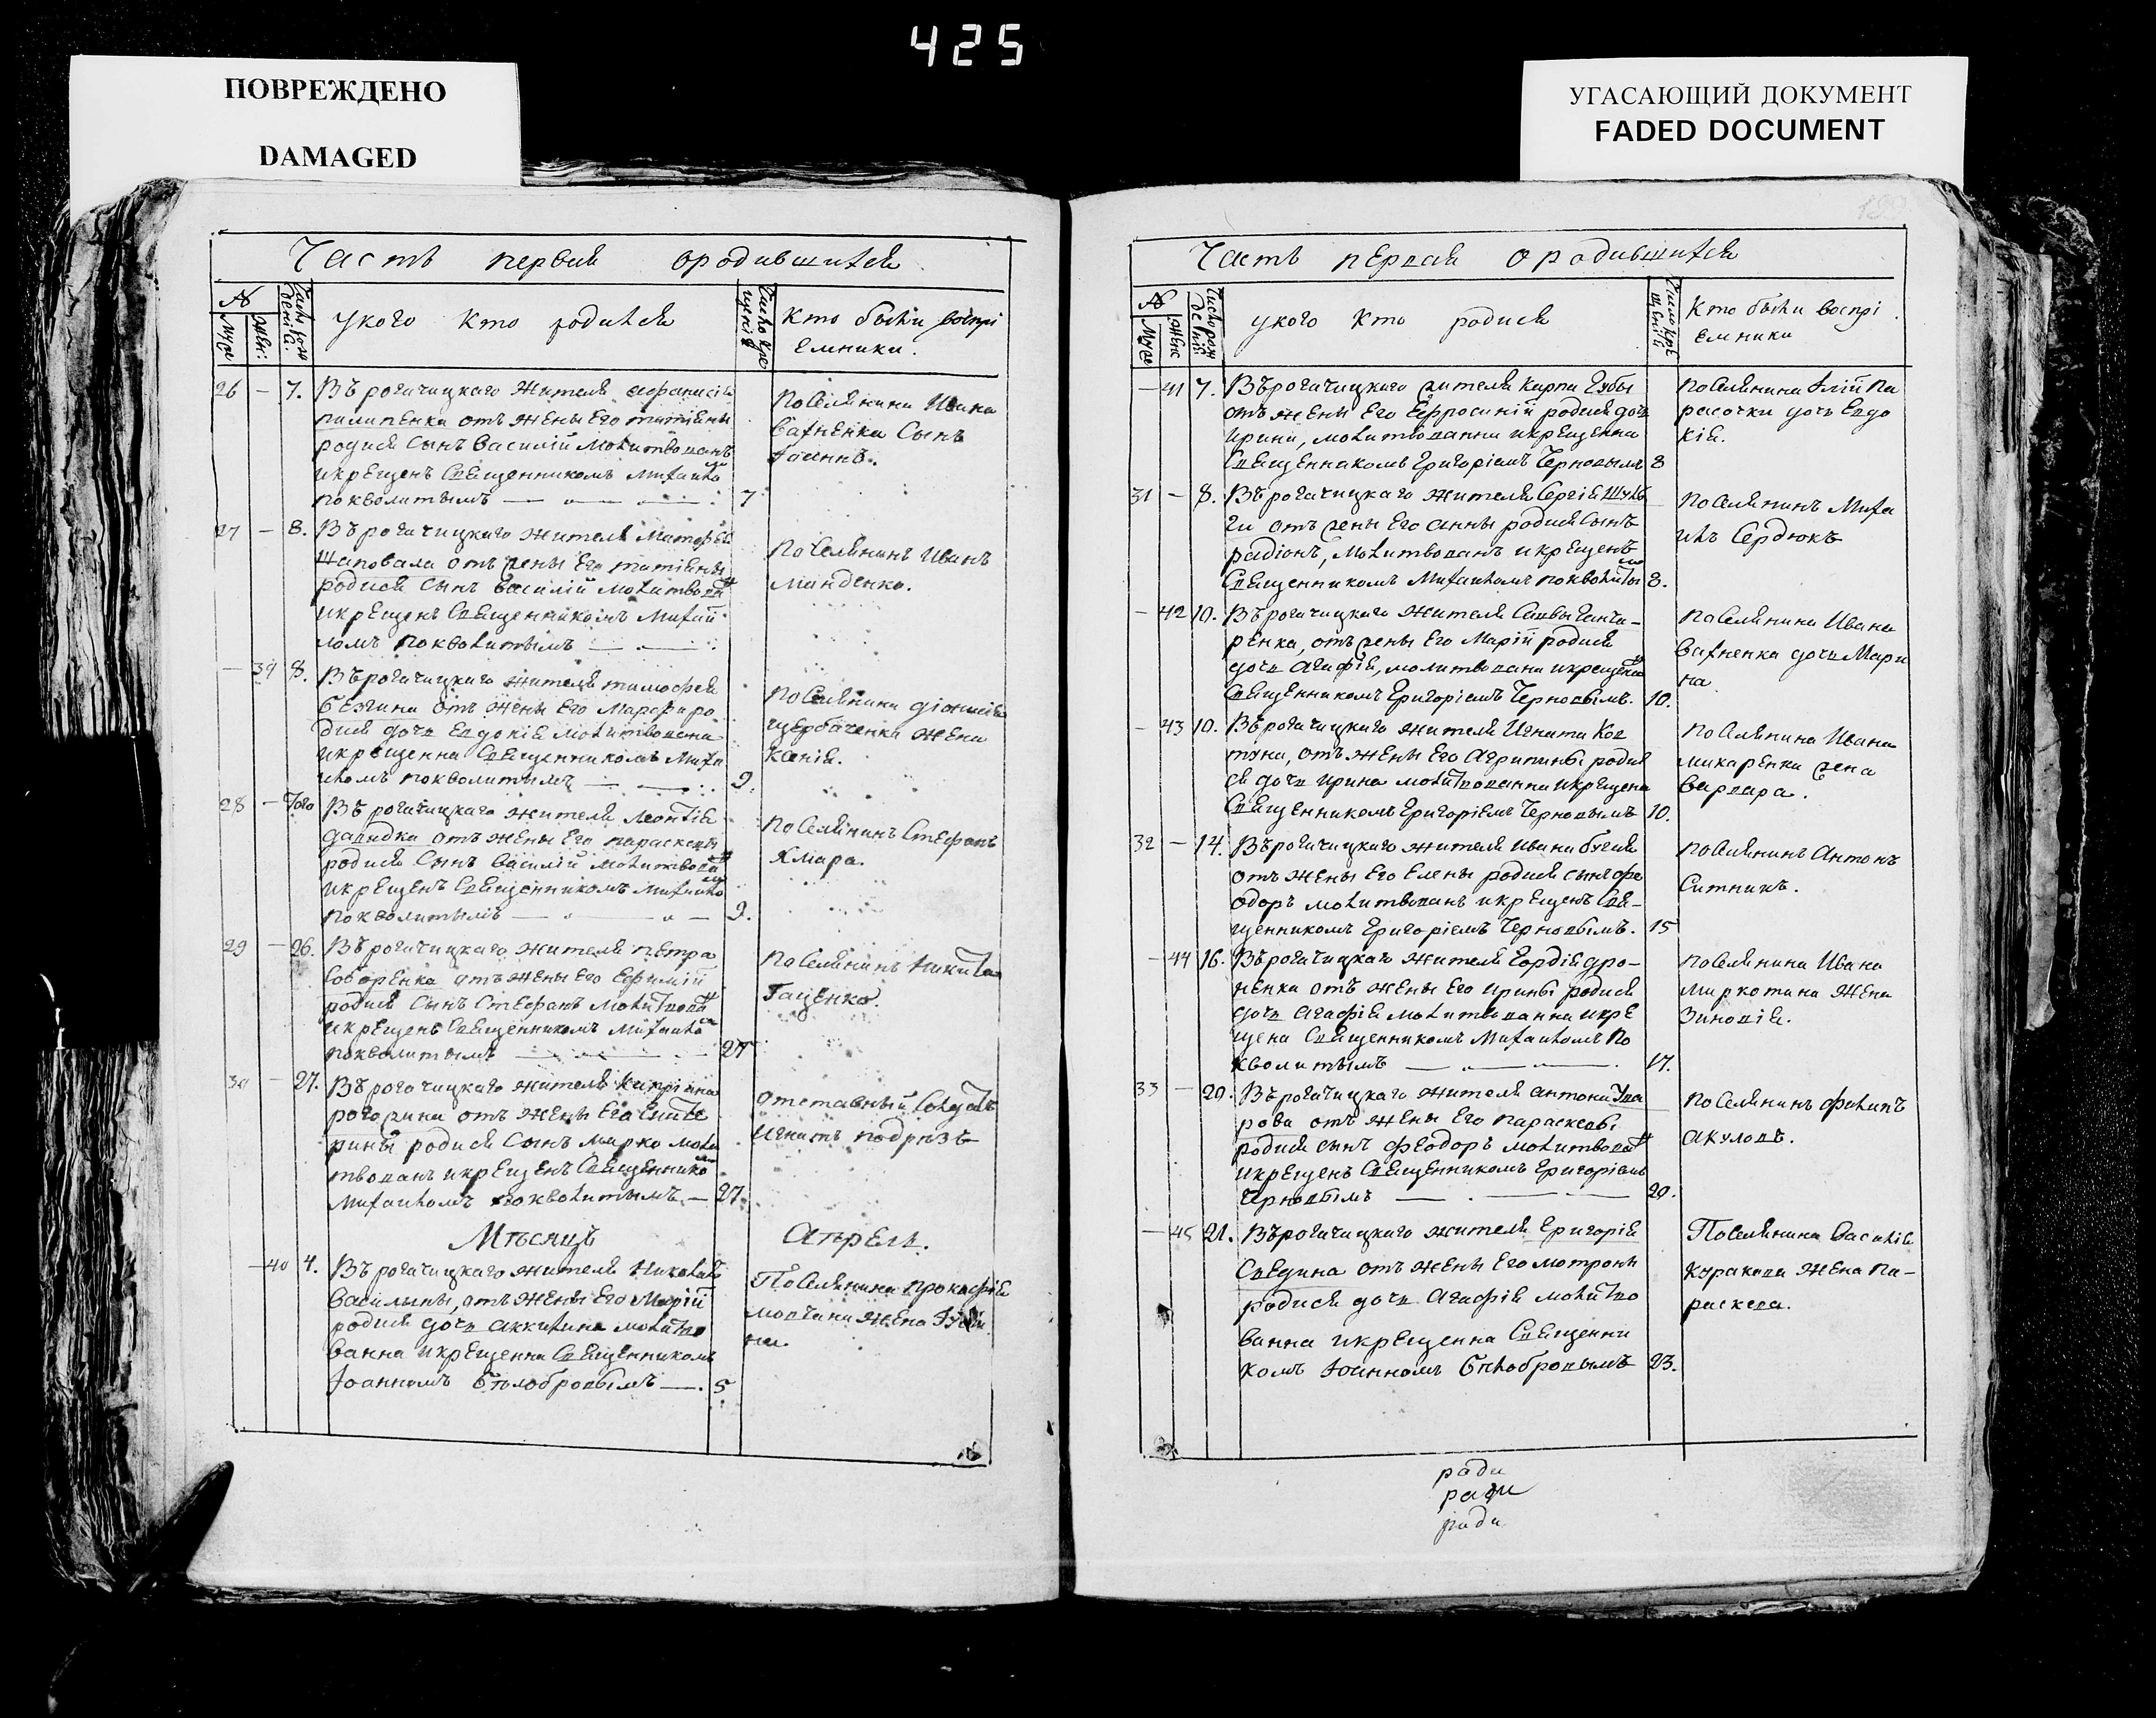 425
ПОВРЕЖДЕНО
DAMAGED
УГАСАЮЩИЙ ДОКУМЕНТ
FADED DOCUMENT
Часть первая ородившихся
№
Муж
Жен:
Число рождения
укого кто родился
Число крещения
Кто были воспрі
емники.
26 — 7. Върогачицкаго жителя афанасія
пилипенка отъ жены Его татіяны
родился Сынъ Василій Молитвованъ
икрещенъ Священникомъ Михаило
поквалитымъ 7
Поселянина Ивана
Вахненка Сынъ
Іоаннъ.
27 — 8. Върогачицкаго жителя Матфея
Шаповала отъ жены Его татіяны
родился сынъ Василій Молитвован
икрещенъ Священникомъ Михаи
ломъ поквалитымъ
Поселянинъ Иванъ
Манденко.
— 39 8. Върогачицкаго жителя тимофея
безгина отъ жены Его Марфы ро
дися дочь Евдокія Молитвована
икрещенна Священникомъ Миха
иломъ поквалитымъ 9.
Поселянина діонисія
щербаченка жена
Ксенія.
28 — Того Върогачицкаго жителя Леонтія
давидка отъ жены Его параскевы
родился Сынъ Василій Молитвован
икрещенъ Священникомъ Михаило
поквалитымъ 9.
Поселянинъ Стефанъ
Хмара.
29 — 26. Върогачицкаго жителя петра
Соборенка отъ жены Его Ефимій
родися Сынъ Стефанъ Молитвован
икрещенъ Священникомъ Михаило
поквалитымъ 27
Поселянинъ Никита
Гащенко.
30 — 27. Върогачицкаго жителя Кипріяна
рогожина отъ жены Его Екате
рины родися Сынъ Марко Моли
твованъ икрещенъ Священнико
Михаиломъ поквалитымъ — 27.
отставный Солдатъ
Игнатъ подрезъ
Мѣсяцъ Апрель.
— 40 4. Върогачицкаго жителя Николая
Васильины, отъ жены Его Марій
родися дочь Аккилина Молитво
ванна икрещенна Священникомъ
Іоанномъ Бѣлобровымъ — 5
Поселянина прокофія
мовчана жена
на.
Часть первая ородившихся
№
Муж
Жен
Число рождения
укого кто родися
Число крещения
Кто были воспрі
емники
— 41 7. Върогачицкаго жителя Карпа Губы
отъ жены Его Ефросиній родися дочь
Ирина, Молитвованна икрещенна
Священникомъ Григоріемъ Черновымъ 8
Поселянина Илій Па
расочки дочь Евдо
кія.
31 — 8. Върогачицкаго жителя Сергія Шуль
ги отъ жены Его анны родися Сынъ
радіонъ, Молитвованъ икрещенъ
Священникомъ Михаиломъ поквалиты 8.
Поселянинъ Миха
илъ Сердюкъ
— 42 10. Върогачицкаго жителя Саввы Ганча-
ренка, отъ жены Его Марій родися
дочь Агафія, молитвована икрещена
Священникомъ Григоріемъ Черновымъ. 10.
Поселянина Ивана
Вахненка дочь Мари
на
— 43 10. Върогачицкаго жителя Игната Ков
туна, отъ жены Его Агрипины родил
ся дочь Ирина молитвованна икрещена
Священникомъ Григоріемъ Черновымъ 10.
Поселянина Ивана
макаренка жена
Варвара.
32 — 14. Върогачицкаго жителя Ивана бугая
отъ жены Его Елены родися сынъ фе
одоръ молитвованъ икрещенъ Свя-
щенникомъ Григоріемъ Черновымъ. 15
Поселянинъ Антонъ
Ситникъ.
— 44 16. Върогачицкаго жителя Гордія дро-
ненка отъ жены Его Ирины родися
дочь Агафія Молитвованна икре
щена Священникомъ Михаиломъ По
квалитымъ 17.
Поселянина Ивана
Миркотана жена
Зиновія.
33 — 20. Върогачицкаго жителя Антона Ува
рова отъ жены Его Параскевы
родися сынъ Феодоръ Молитвован
икрещенъ Священникомъ Григоріемъ
Черновымъ 20.
Поселянинъ Филипъ
Акуловъ.
— 45 21. Върогачицкаго жителя Григорія
Сведина отъ жены Его мотроны
родися дочь Агафія Молитво
ванна икрещенна Священни
комъ Іоанномъ Бѣлобровымъ 23.
Поселянина Василія
Куракова жена Па-
раскева.
ради
ради
ради